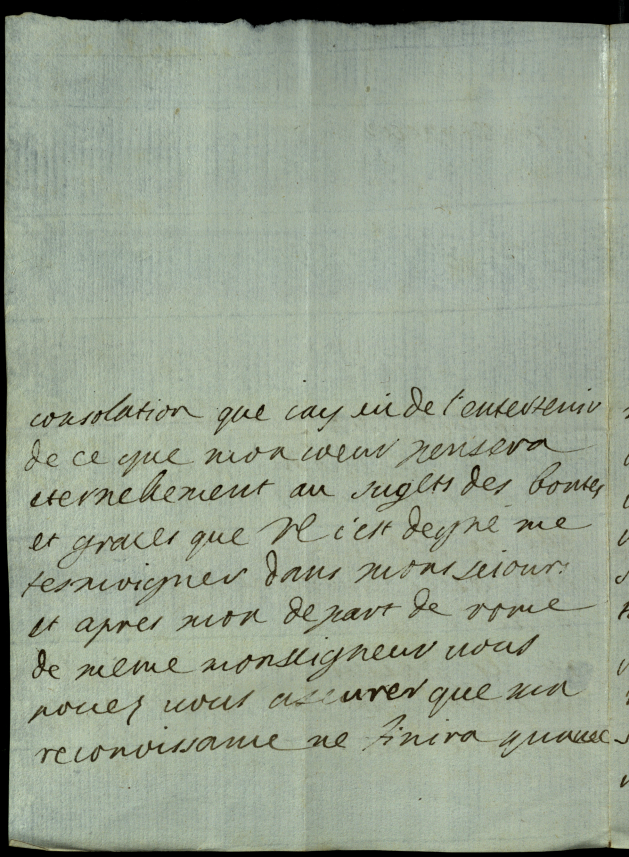 consolation que jay eu de l'entertenir
de ce que mon coeur pensera
eternellement au sugets des bontes
et graces que Il c'est deyné me
tesmoigner dans mons seiour
et apres mon depart de rome
de meme monseigneur vous
pouez vous assurer que ma
reconoissance ne finira